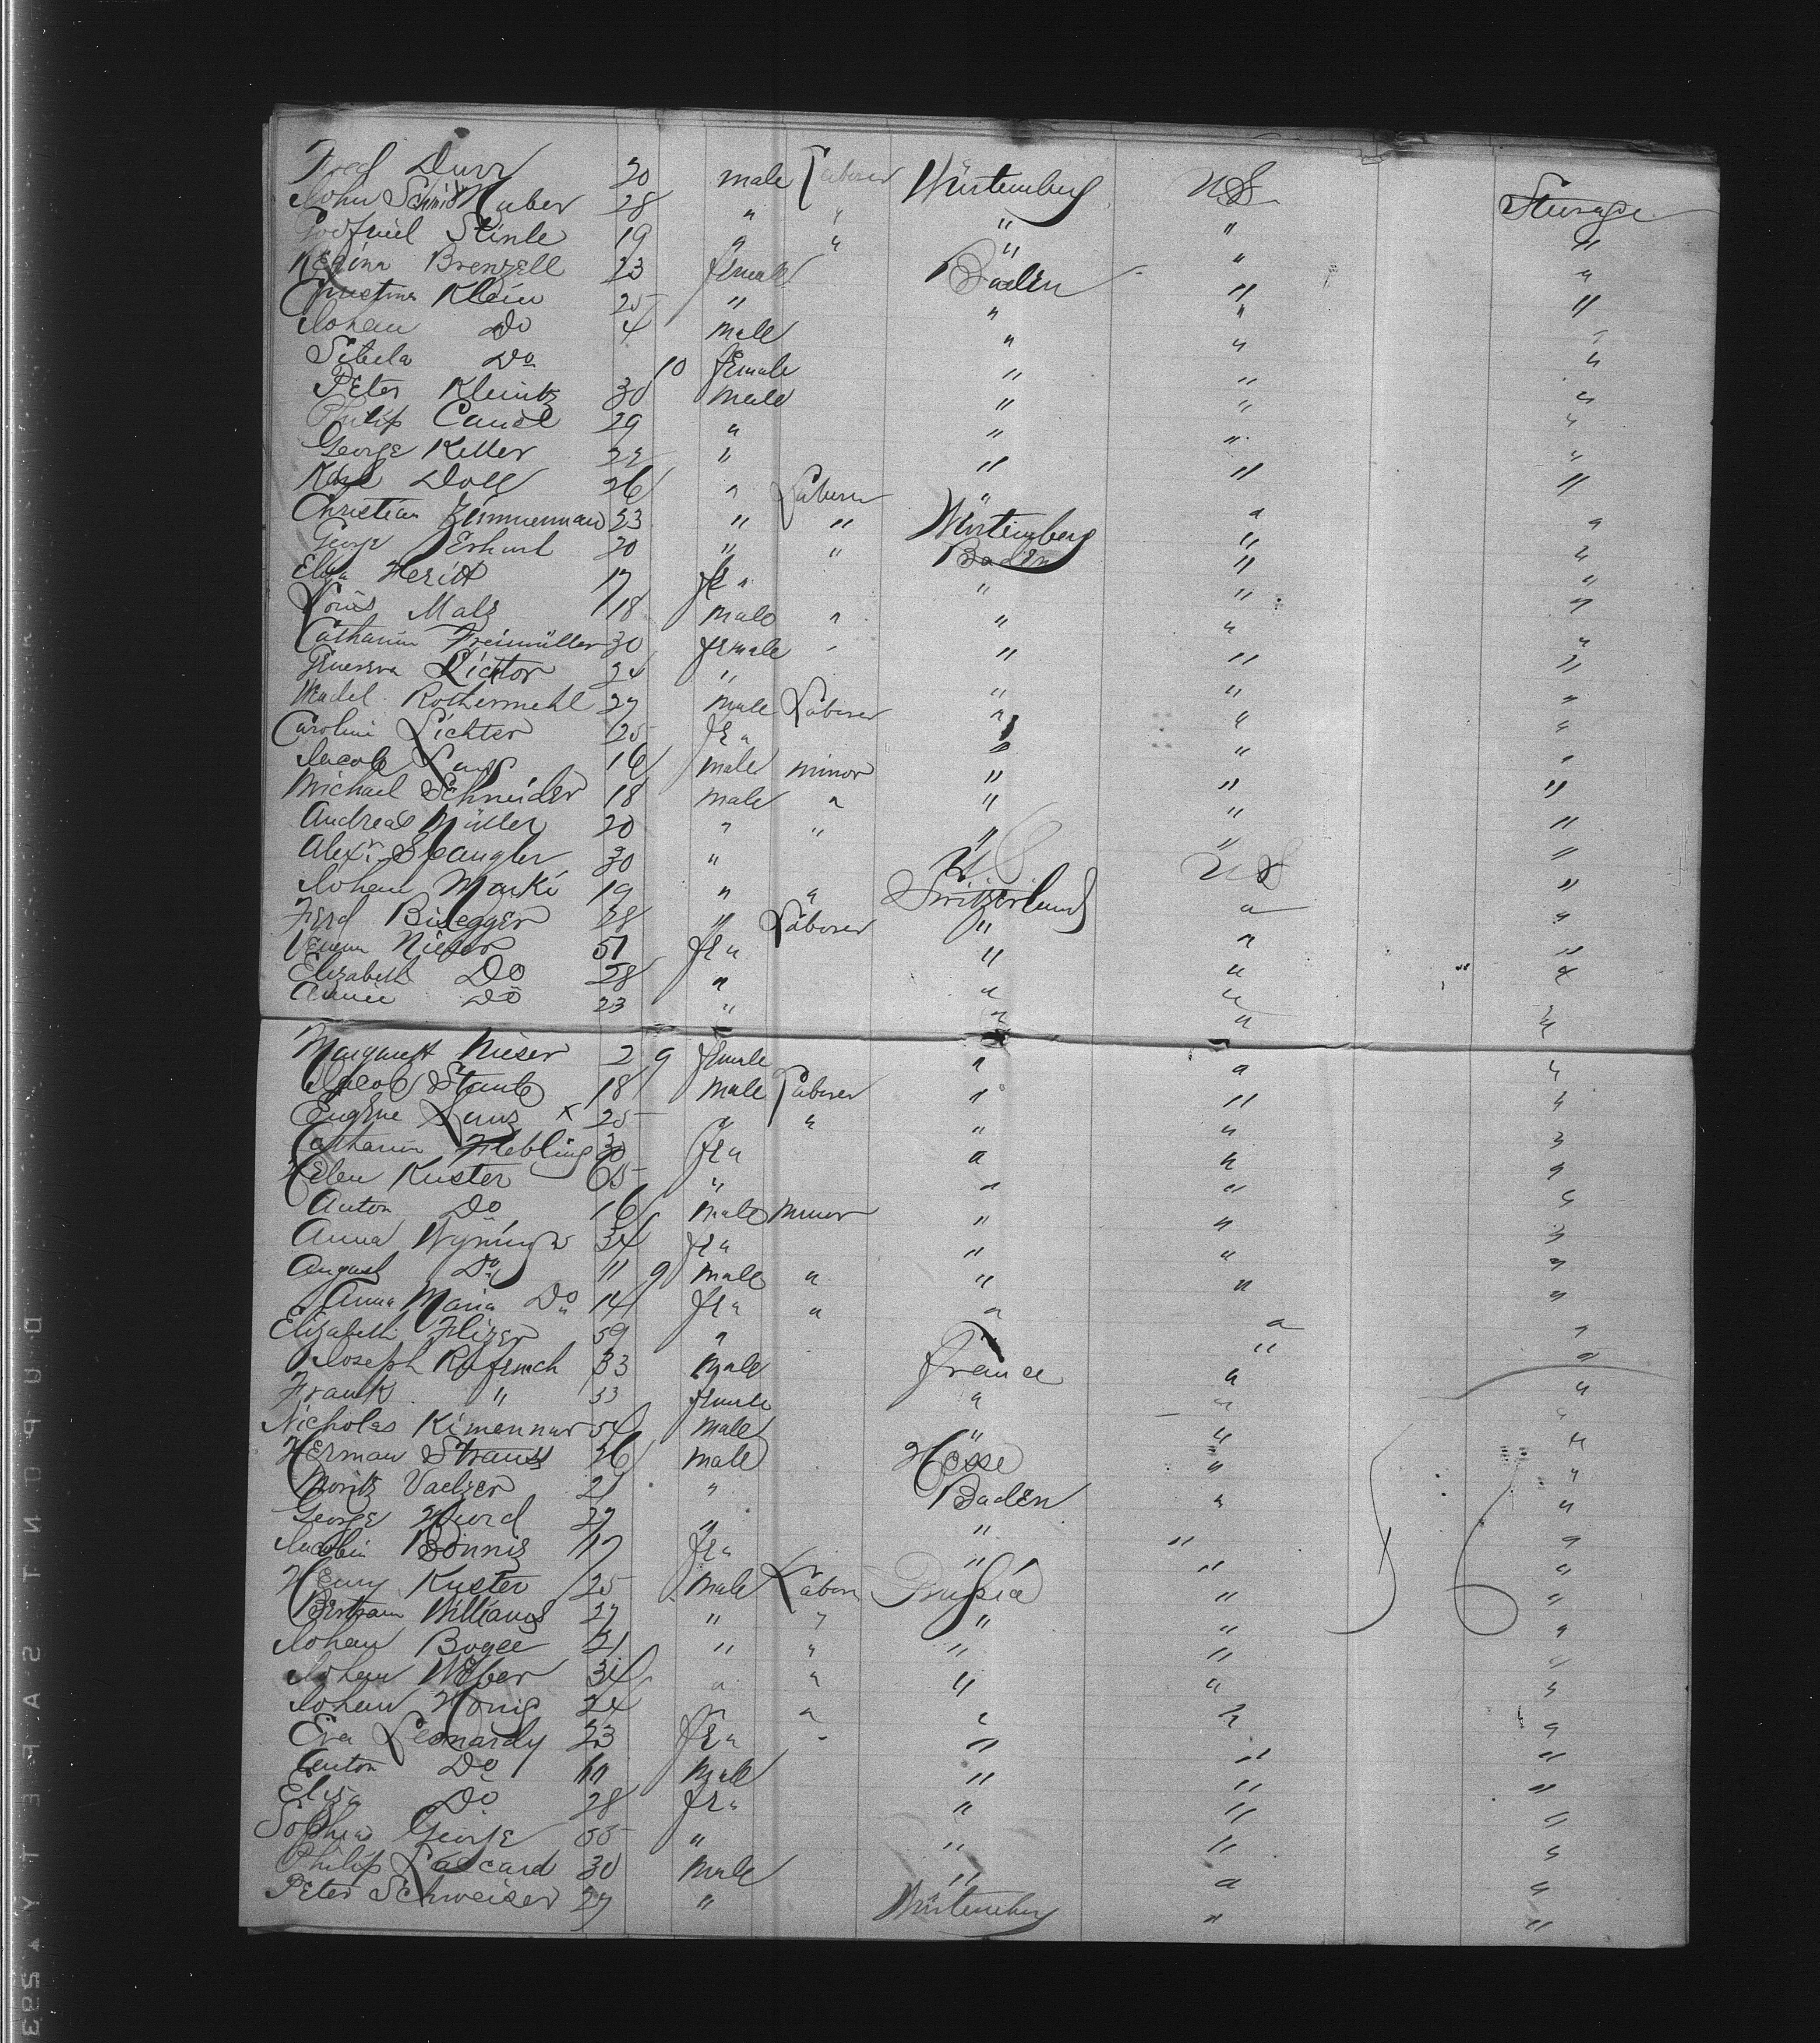 Fred Durr 20 male Laborer Würtemberg U S Steurage
John Schmid Huber 28 " " " " "
Godfried Stinle 19 " " " " "
Regina Brenzell 23 female Baden " "
Christina Klein 25 " " " "
Johan Do 4 male " " "
Do 10 female " " "
Peter Kleintz 30 male " " "
Philip 29 " " " "
George Keller 22 " " " "
Karl Doll 26 " Laborer " " "
Christian Zimmerman 23 " " Würtemberg " "
George Erhart 20 " " Baden " "
17 fe " " " "
Louis Malz 18 male " " " "
Catharin Freimüller 30 female " " " "
Lichtor 24 " " " "
Rothermehl 27 male Laborer " " "
Carolini Lichter 25 fe " " " "
Jacob 16 male minor " " "
Michael Schneider 18 male " " " "
Andreas Müller 20 " " " " "
Alexr. Spangler 30 " U S U S "
Johan Marki 19 " " Switzerland " "
Ferd Buegger 28 " Laborer " " "
Nieser 51 fe " " " "
Elizabeth Do 28 " " " "
Do 23 " " " "
Margarett Nieser 2 9 female " " "
Jacob Staub 18 male Laborer " " "
Eugene x 25 " " " " "
Catharin 30 fe " " " "
Helen Kuster 65 " " " "
Anton Do 16 male minor " " "
Anna 34 fe " " " "
August Do 11 9 male " " " "
Anna Maria Do 14 fe " " " " "
Elizabeth 59 " " " "
Joseph 33 male France " "
Frank " 33 female " " "
Nicholas Kimennar 54 male " " "
Herman Strauss 26 male Hesse " "
Moritz 21 " Baden " "
George 27 " " " "
17 fe " " " "
Henry Kuster 25 male Labor Prussia " "
Bertram Williams 27 " " " " "
Johan 21 " " " " "
Johan Weber 34 " " " " "
Johan König 24 " " " " "
Eva Leonardy 23 fe " " " " "
Anton Do male " " "
Eliza Do 28 fe " " " "
Sophia George 55 " " " "
Philip Lascard 30 male " " "
Peter Schweiser 27 " Würtemberg " "